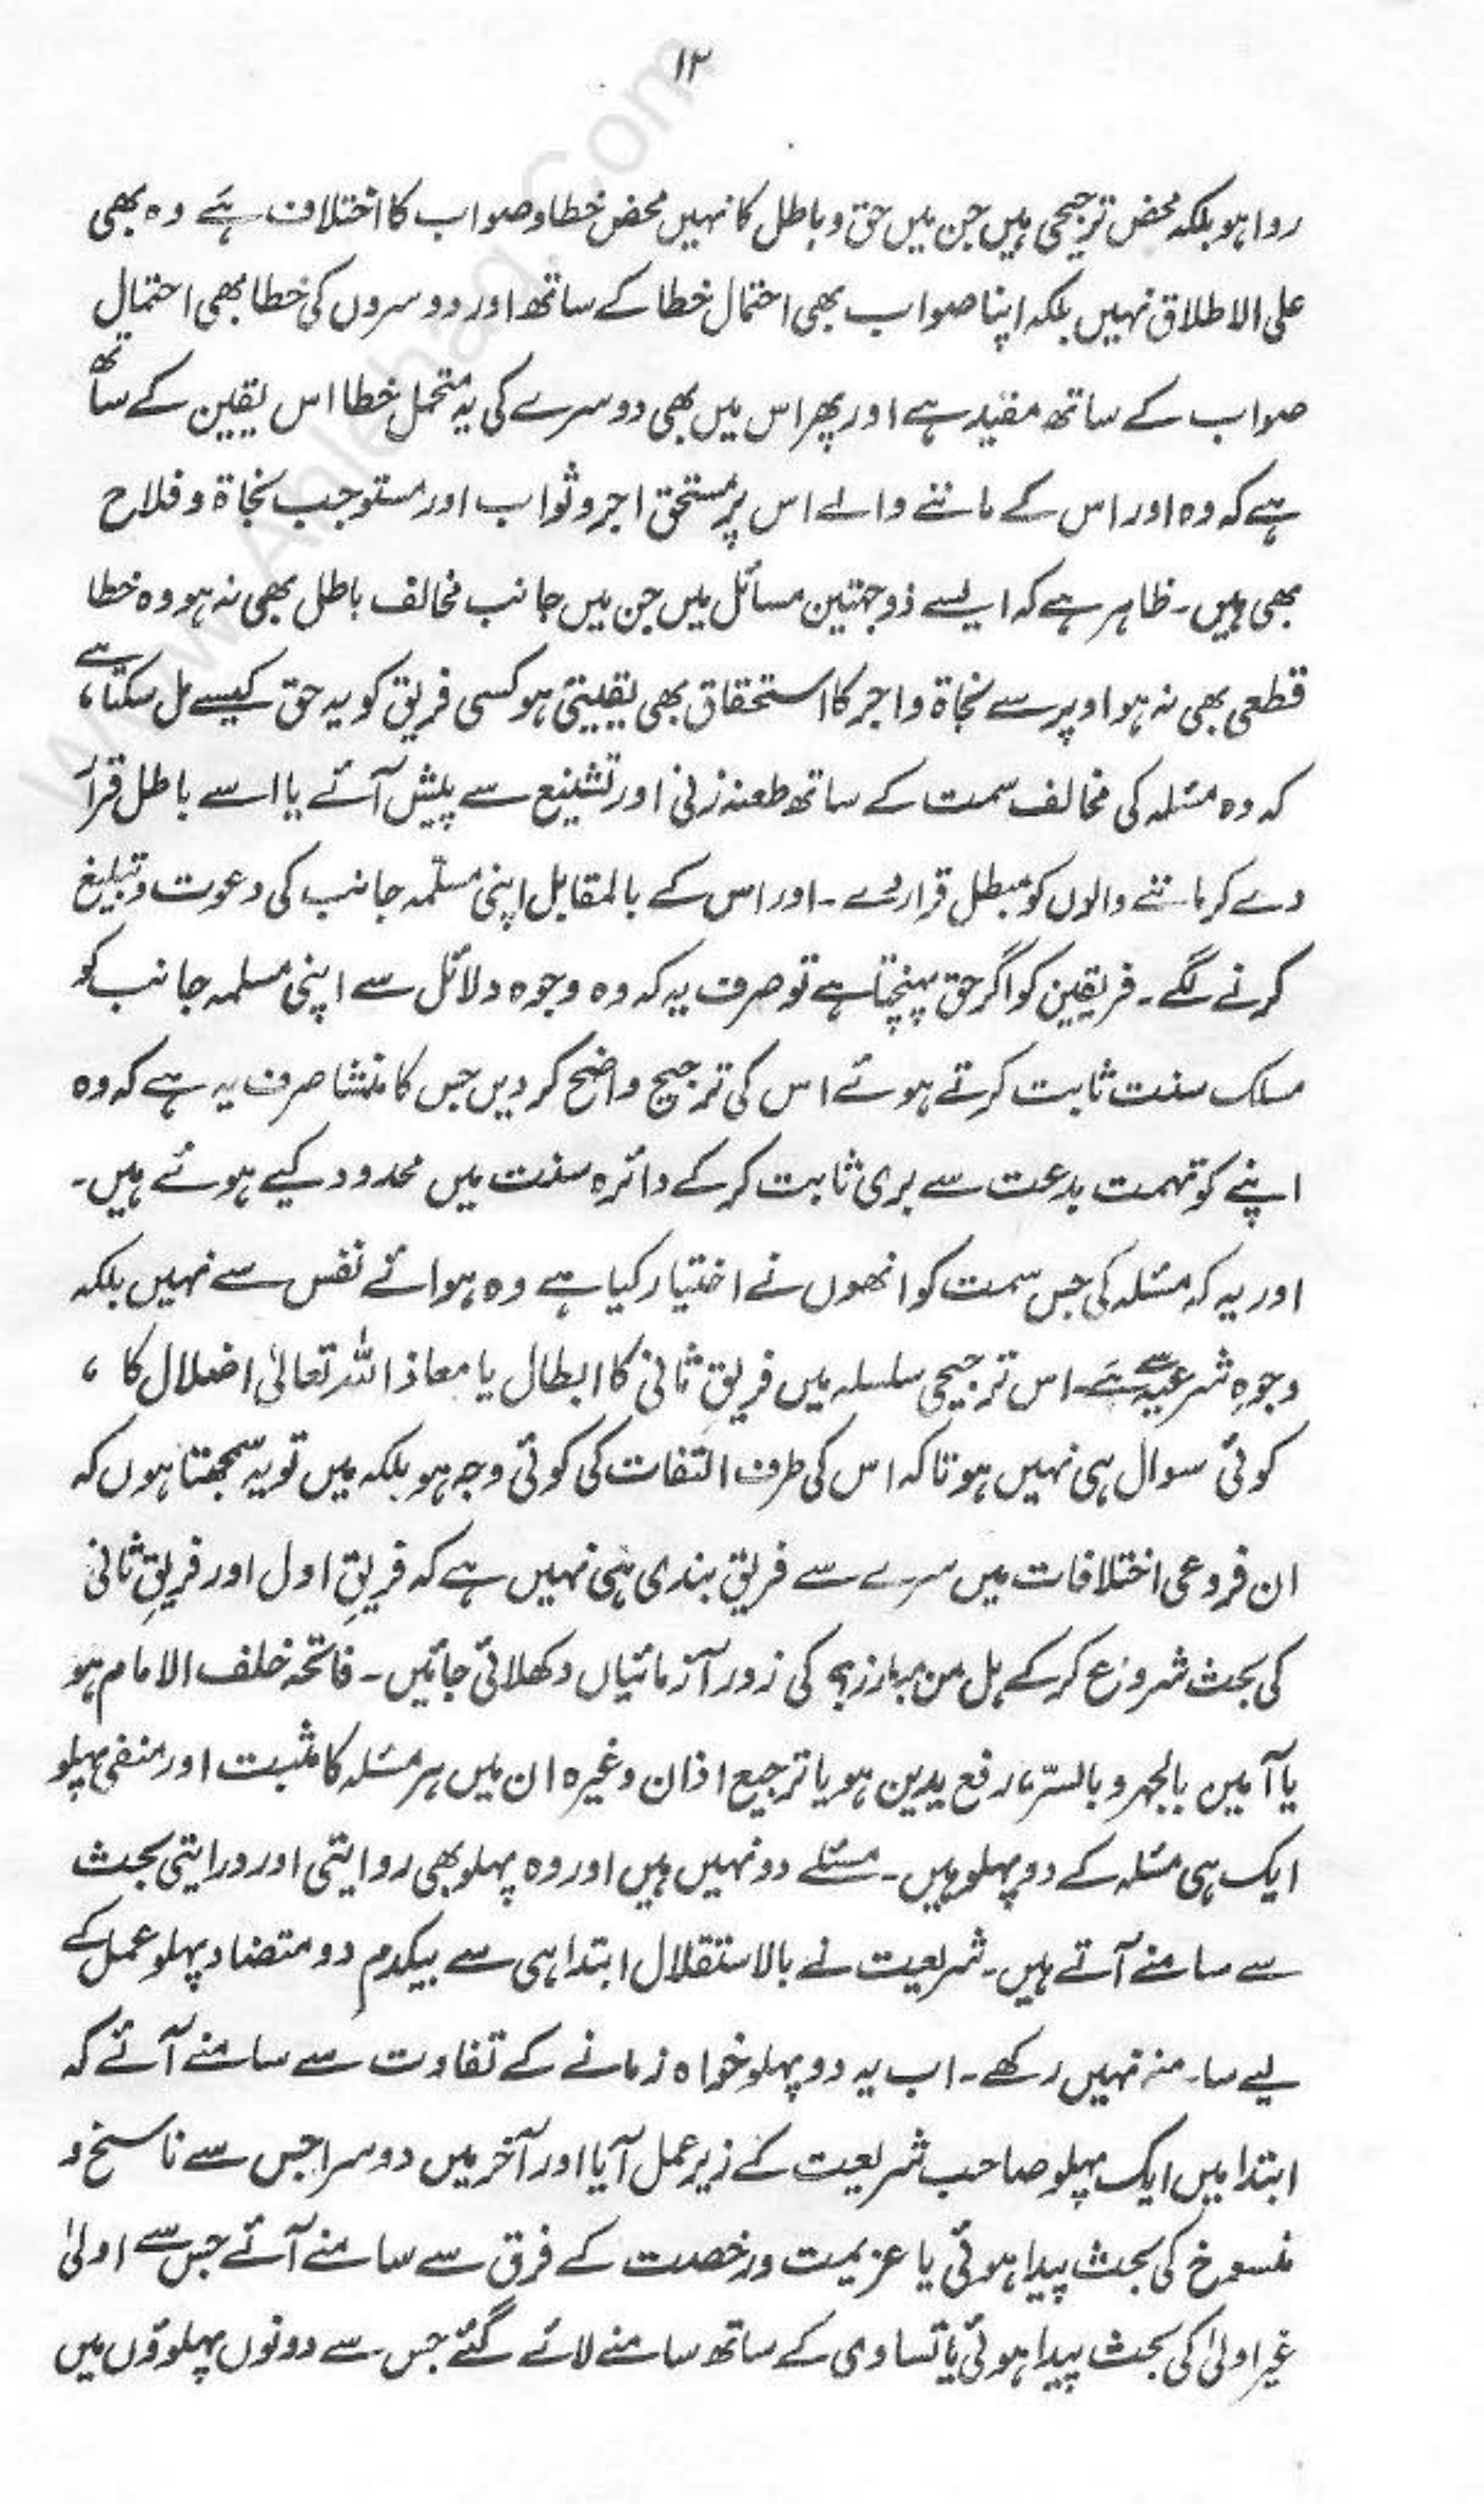 ۱۲
روا ہو بلکہ محض ترجیحی ہیں جن میں حق و باطل کا نہیں محض خطا و صواب کا اختلاف ہے وہ بھی
علی الاطلاق نہیں بلکہ اپنا صواب بھی احتمال خطا کے ساتھ اور دوسروں کی خطا بھی احتمال
صواب کے ساتھ مقید ہے اور پھر اس میں بھی دوسرے کی یہ متحمل خطا اس یقین کے ساتھ
ہے کہ وہ اور اس کے ماننے والے اس پر مستحق اجر و ثواب اور مستوجب نجاۃ و فلاح
بھی ہیں۔ ظاہر ہے کہ ایسے ذو جہتین مسائل میں جن میں جانب مخالف باطل بھی نہ ہو وہ خطا
قطعی بھی نہ ہو اوپر سے نجاۃ و اجر کا استحقاق بھی یقینی ہو کسی فریق کو یہ حق کیسے مل سکتا ہے،
کہ وہ مسئلہ کی مخالف سمت کے ساتھ طعنہ زنی اور تشنیع سے پیش آئے یا اسے باطل قرار
دے کر ماننے والوں کو مبطل قرار دے۔ اور اس کے بالمقابل اپنی مسلّمہ جانب کی دعوت و تبلیغ
کرنے لگے۔ فریقین کو اگر حق پہنچتا ہے تو صرف یہ کہ وہ وجوہ دلائل سے اپنی مسلمہ جانب کو
مسلک سنت ثابت کرتے ہوئے اس کی ترجیح واضح کر دیں جس کا منشا صرف یہ ہے کہ وہ
اپنے کو تہمت بدعت سے بری ثابت کر کے دائرہ سنت میں محدود کیے ہوئے ہیں۔
اور یہ کہ مسئلہ کی جس سمت کو انھوں نے اختیار کیا ہے وہ ہوائے نفس سے نہیں بلکہ
وجوہِ شرعیہ سے ہے۔ اس ترجیحی سلسلہ میں فریقِ ثانی کا ابطال یا معاذ اللہ تعالیٰ اضلال کا،
کوئی سوال ہی نہیں ہوتا کہ اس کی طرف التفات کی کوئی وجہ ہو بلکہ میں تو یہ سمجھتا ہوں کہ
ان فروعی اختلافات میں سرے سے فریق بندی ہی نہیں ہے کہ فریقِ اول اور فریقِ ثانی
کی بحث شروع کر کے ہل من مبارز کی زور آزمائیاں دکھلائی جائیں۔ فاتحہ خلف الامام ہو
یا آمین بالجہر و بالسّر، رفع یدین ہو یا ترجیع اذان وغیرہ ان میں ہر مسئلہ کا مثبت اور منفی پہلو
ایک ہی مسئلہ کے دو پہلو ہیں۔ مسئلے دو نہیں ہیں اور وہ پہلو بھی روایتی اور درایتی بحث
سے سامنے آتے ہیں۔ شریعت نے بالاستقلال ابتدا ہی سے یکدم دو متضاد پہلو عمل کے
لیے سامنے نہیں رکھے۔ اب یہ دو پہلو خواہ زمانے کے تفاوت سے سامنے آئے کہ
ابتدا میں ایک پہلو صاحب شریعت کے زیر عمل آیا اور آخر میں دوسرا جس سے ناسخ و
منسوخ کی بحث پیدا ہوئی یا عزیمت و رخصت کے فرق سے سامنے آئے جس سے اولیٰ
غیر اولیٰ کی بحث پیدا ہوئی یا تساوی کے ساتھ سامنے لائے گئے جس سے دونوں پہلوؤں میں